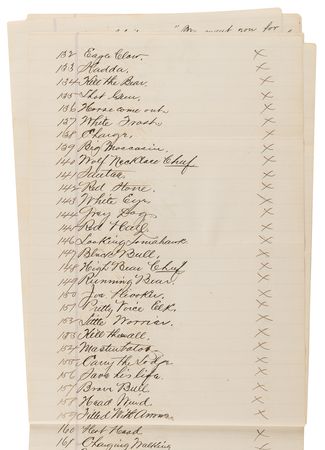 "
now for
152 Eagle Claw. x
153 x
154 Kill the Bear. x
155 Shot Gun. x
156 Horse come out x
157 White Frost x
138 Charge. x
139 Big Moccasin x
140 Wolf Necklace Chief x
141 x
142 Red Horse. x
143 White Eye x
144 Grey Dog x
145 Red Hail x
146 Looking Tomahawk x
147 Black Bull, x
148 High Bear Chief x
149 Running Bear. x
150 Joe Hooker. x
151 Pretty Voice Elk. x
152 Little Warrior. x
153 Kill them all. x
154 x
155 Carry the Lodge x
156 Save his life. x
157 Brave Bull x
158 Head Wind x
159 Killed With Arrow x
160 Hart Head x
161 Charging Walking x